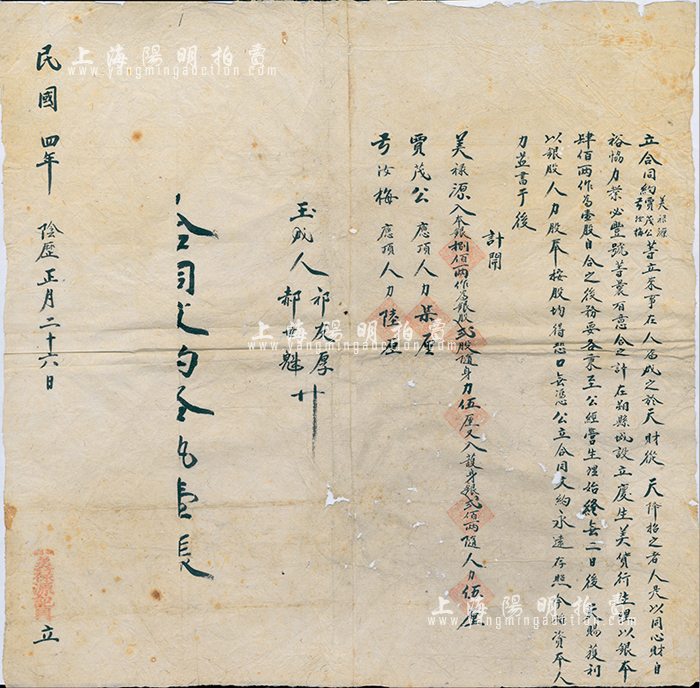 立合同約美祿源賈茂公芳汝梅等立來事在人為成之於天財從天降招之者人是以同心財自
裕協力業必豐號等曩有意合之計在朔縣城設立慶生美貨行生理以銀本
肆佰兩作為壹股自合之後務要各秉至公經營生理始終無二日後天賜獲利
以銀股人力股本按股均得恐口無憑公立合同文約永遠存照今將資本人
力並書于後
計開
美祿源入本銀捌佰兩作為銀股貳股隨身力伍厘又入護身銀貳佰兩隨人力伍厘
賈茂公應頂人力柒厘
汝梅應頂人力陸厘
玉成人
祁
厚
郝
魁
十
民國四年陰歷正月二十六日
美祿源記
立
上海陽明拍賣
www.yangmingauction.com
上海陽明拍賣
www.yangmingauction.com
上海陽明拍賣
www.yangmingauction.com